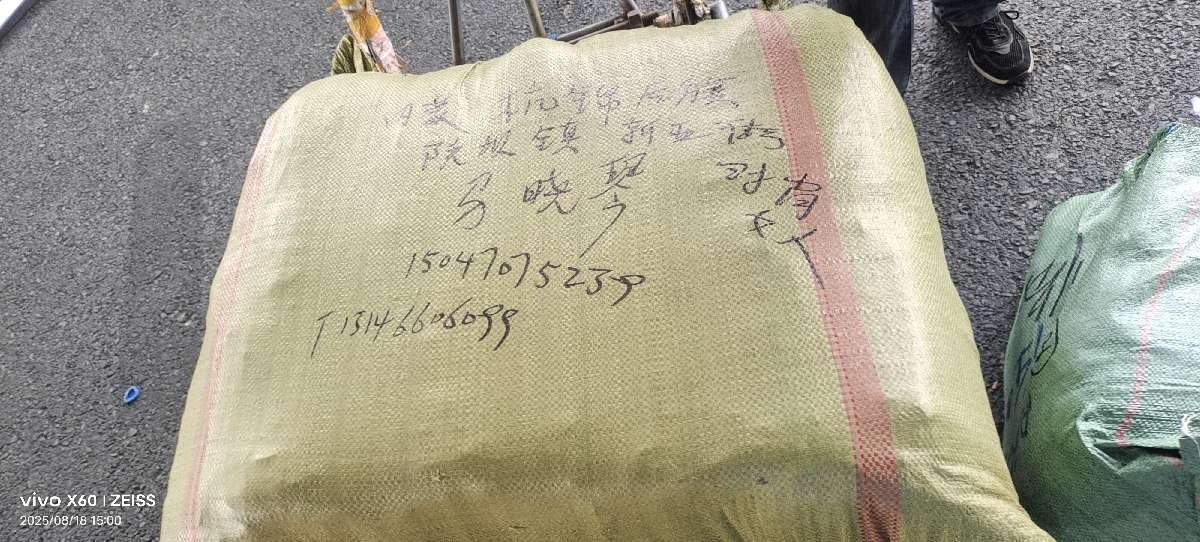 内蒙 杭锦后旗
陕坝镇 新亚街
马晓琴
时尚
女人
15047075239
T13146606099
vivo X60 | ZEISS
2025/08/18 15:00